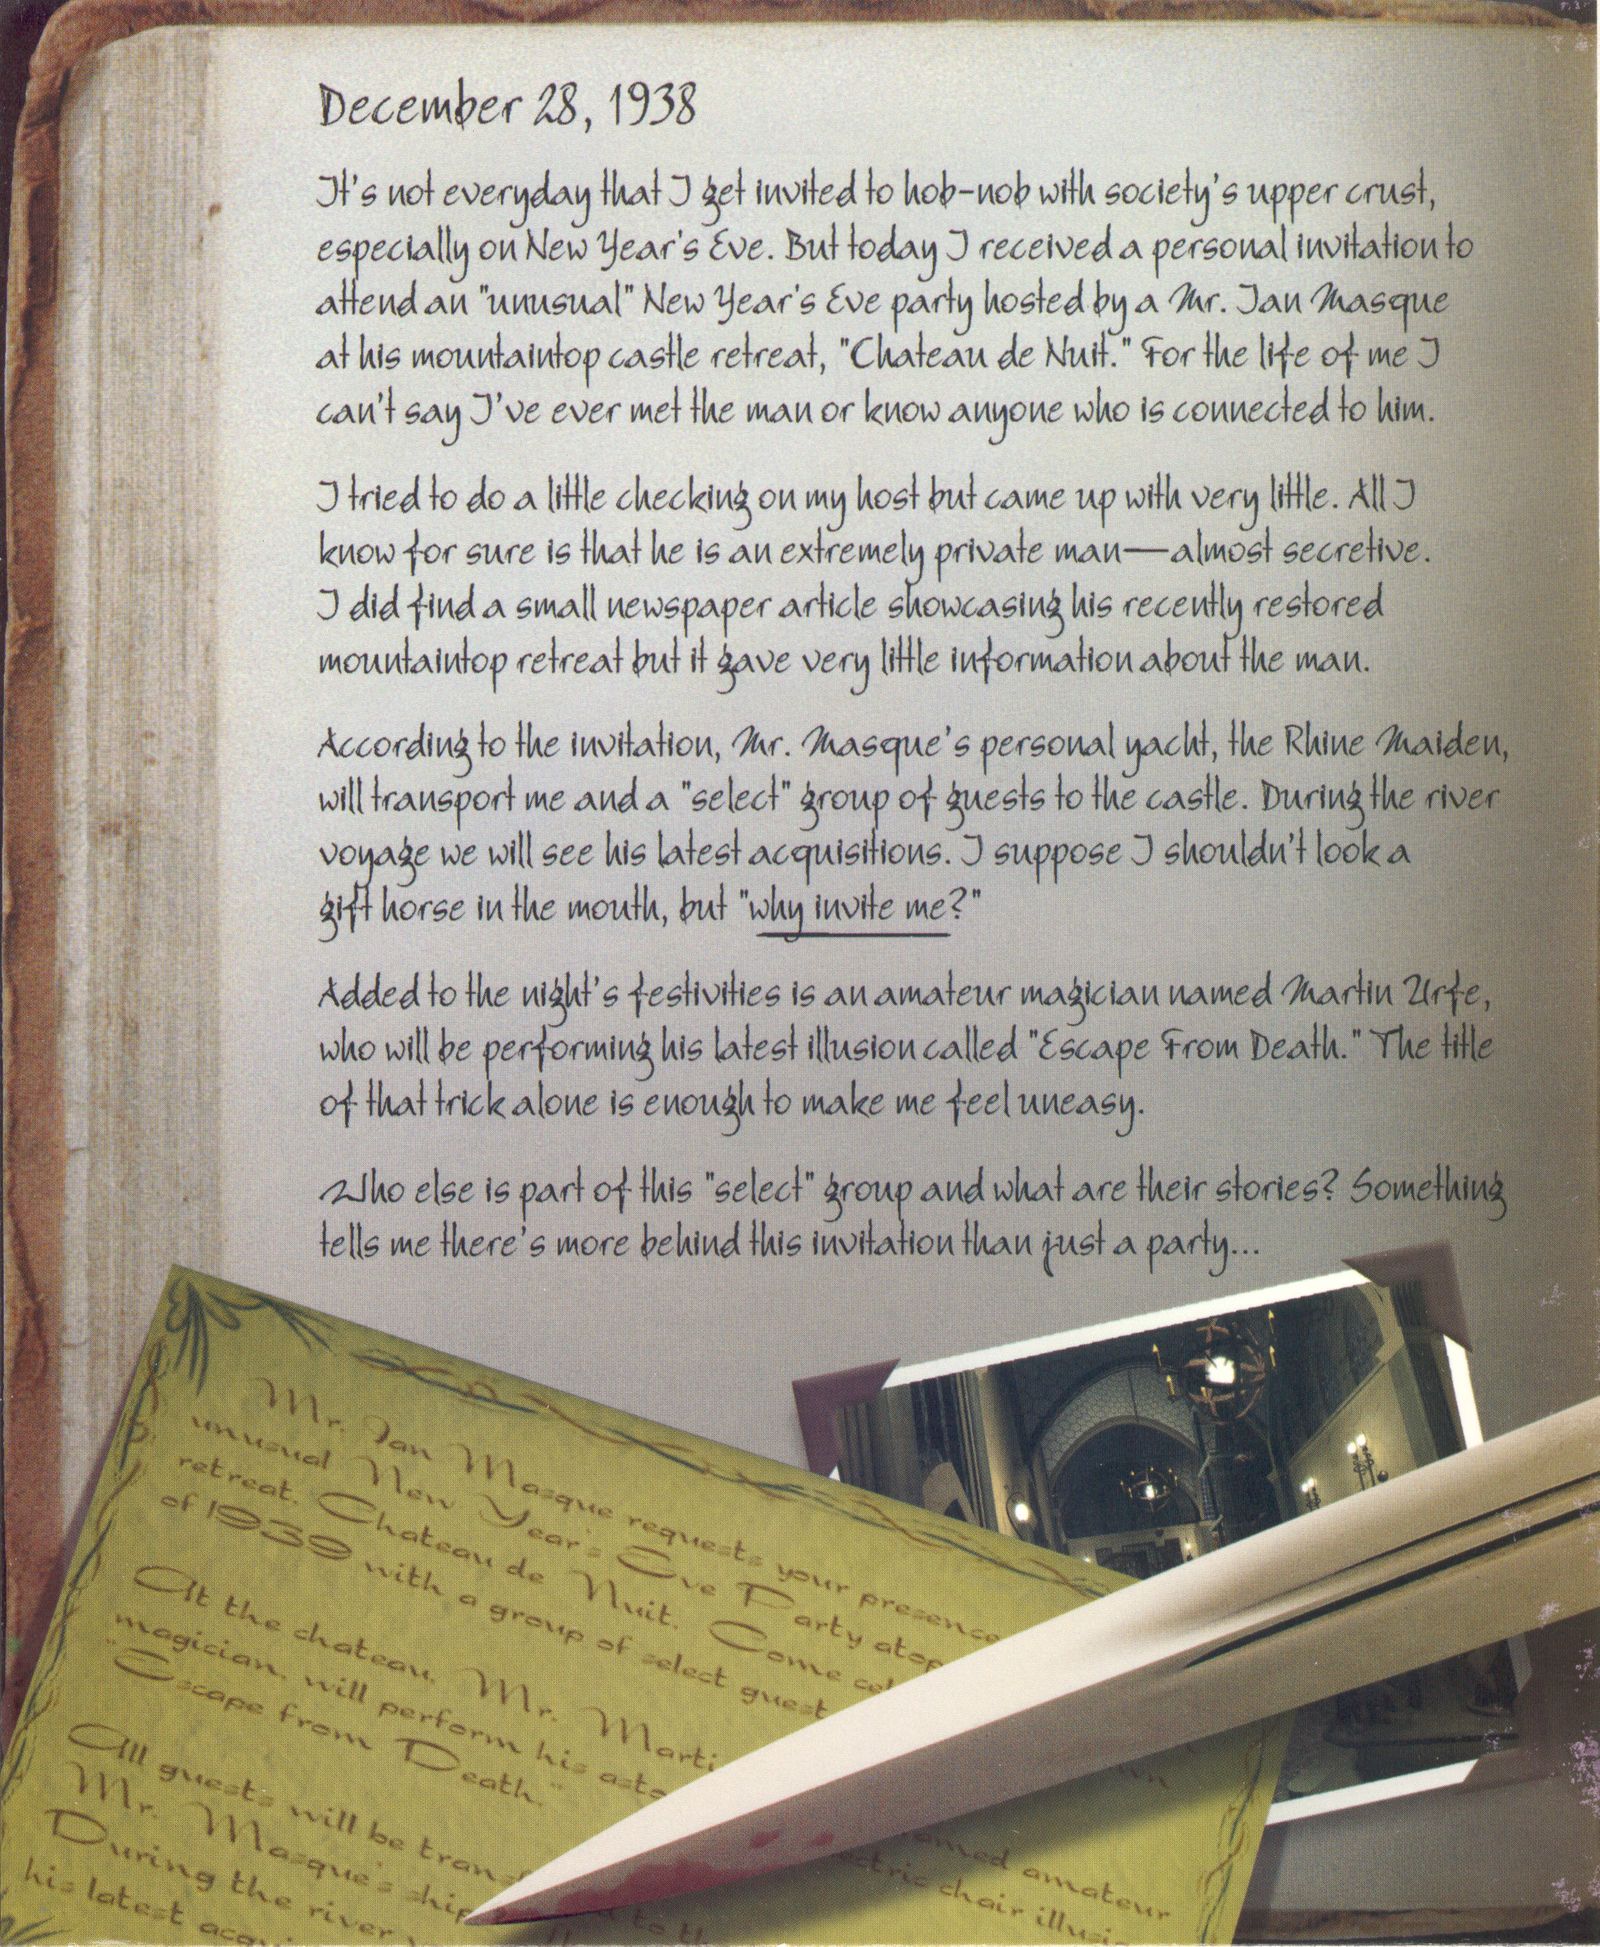 December 28, 1938
It's not everyday that I get invited to hob-nob with society's upper crust,
especially on New Year's Eve. But today I received a personal invitation to
attend an "unusual" New Year's Eve party hosted by a Mr. Ian Masque
at his mountaintop castle retreat, "Chateau de Nuit." For the life of me I
can't say I've ever met the man or know anyone who is connected to him.
I tried to do a little checking on my host but came up with very little. All I
know for sure is that he is an extremely private man—almost secretive.
I did find a small newspaper article showcasing his recently restored
mountaintop retreat but it gave very little information about the man.
According to the invitation, Mr. Masque's personal yacht, the Rhine Maiden,
will transport me and a "select" group of guests to the castle. During the river
voyage we will see his latest acquisitions. I suppose I shouldn't look a
gift horse in the mouth, but "why invite me?"
Added to the night's festivities is an amateur magician named Martin Urfe,
who will be performing his latest illusion called "Escape From Death." The title
of that trick alone is enough to make me feel uneasy.
Who else is part of this "select" group and what are their stories? Something
tells me there's more behind this invitation than just a party...
Mr. Ian Masque requests your presence
unusual New Year's Eve Party atop
retreat, Chateau de Nuit. Come cel
of 1939 with a group of select guest
At the chateau, Mr. Marti
magician, will perform his asto
"Escape from Death."
amed amateur
ectric chair illusi
All guests will be transf
Mr. Masque's ship
to th
During the river
his latest acqui